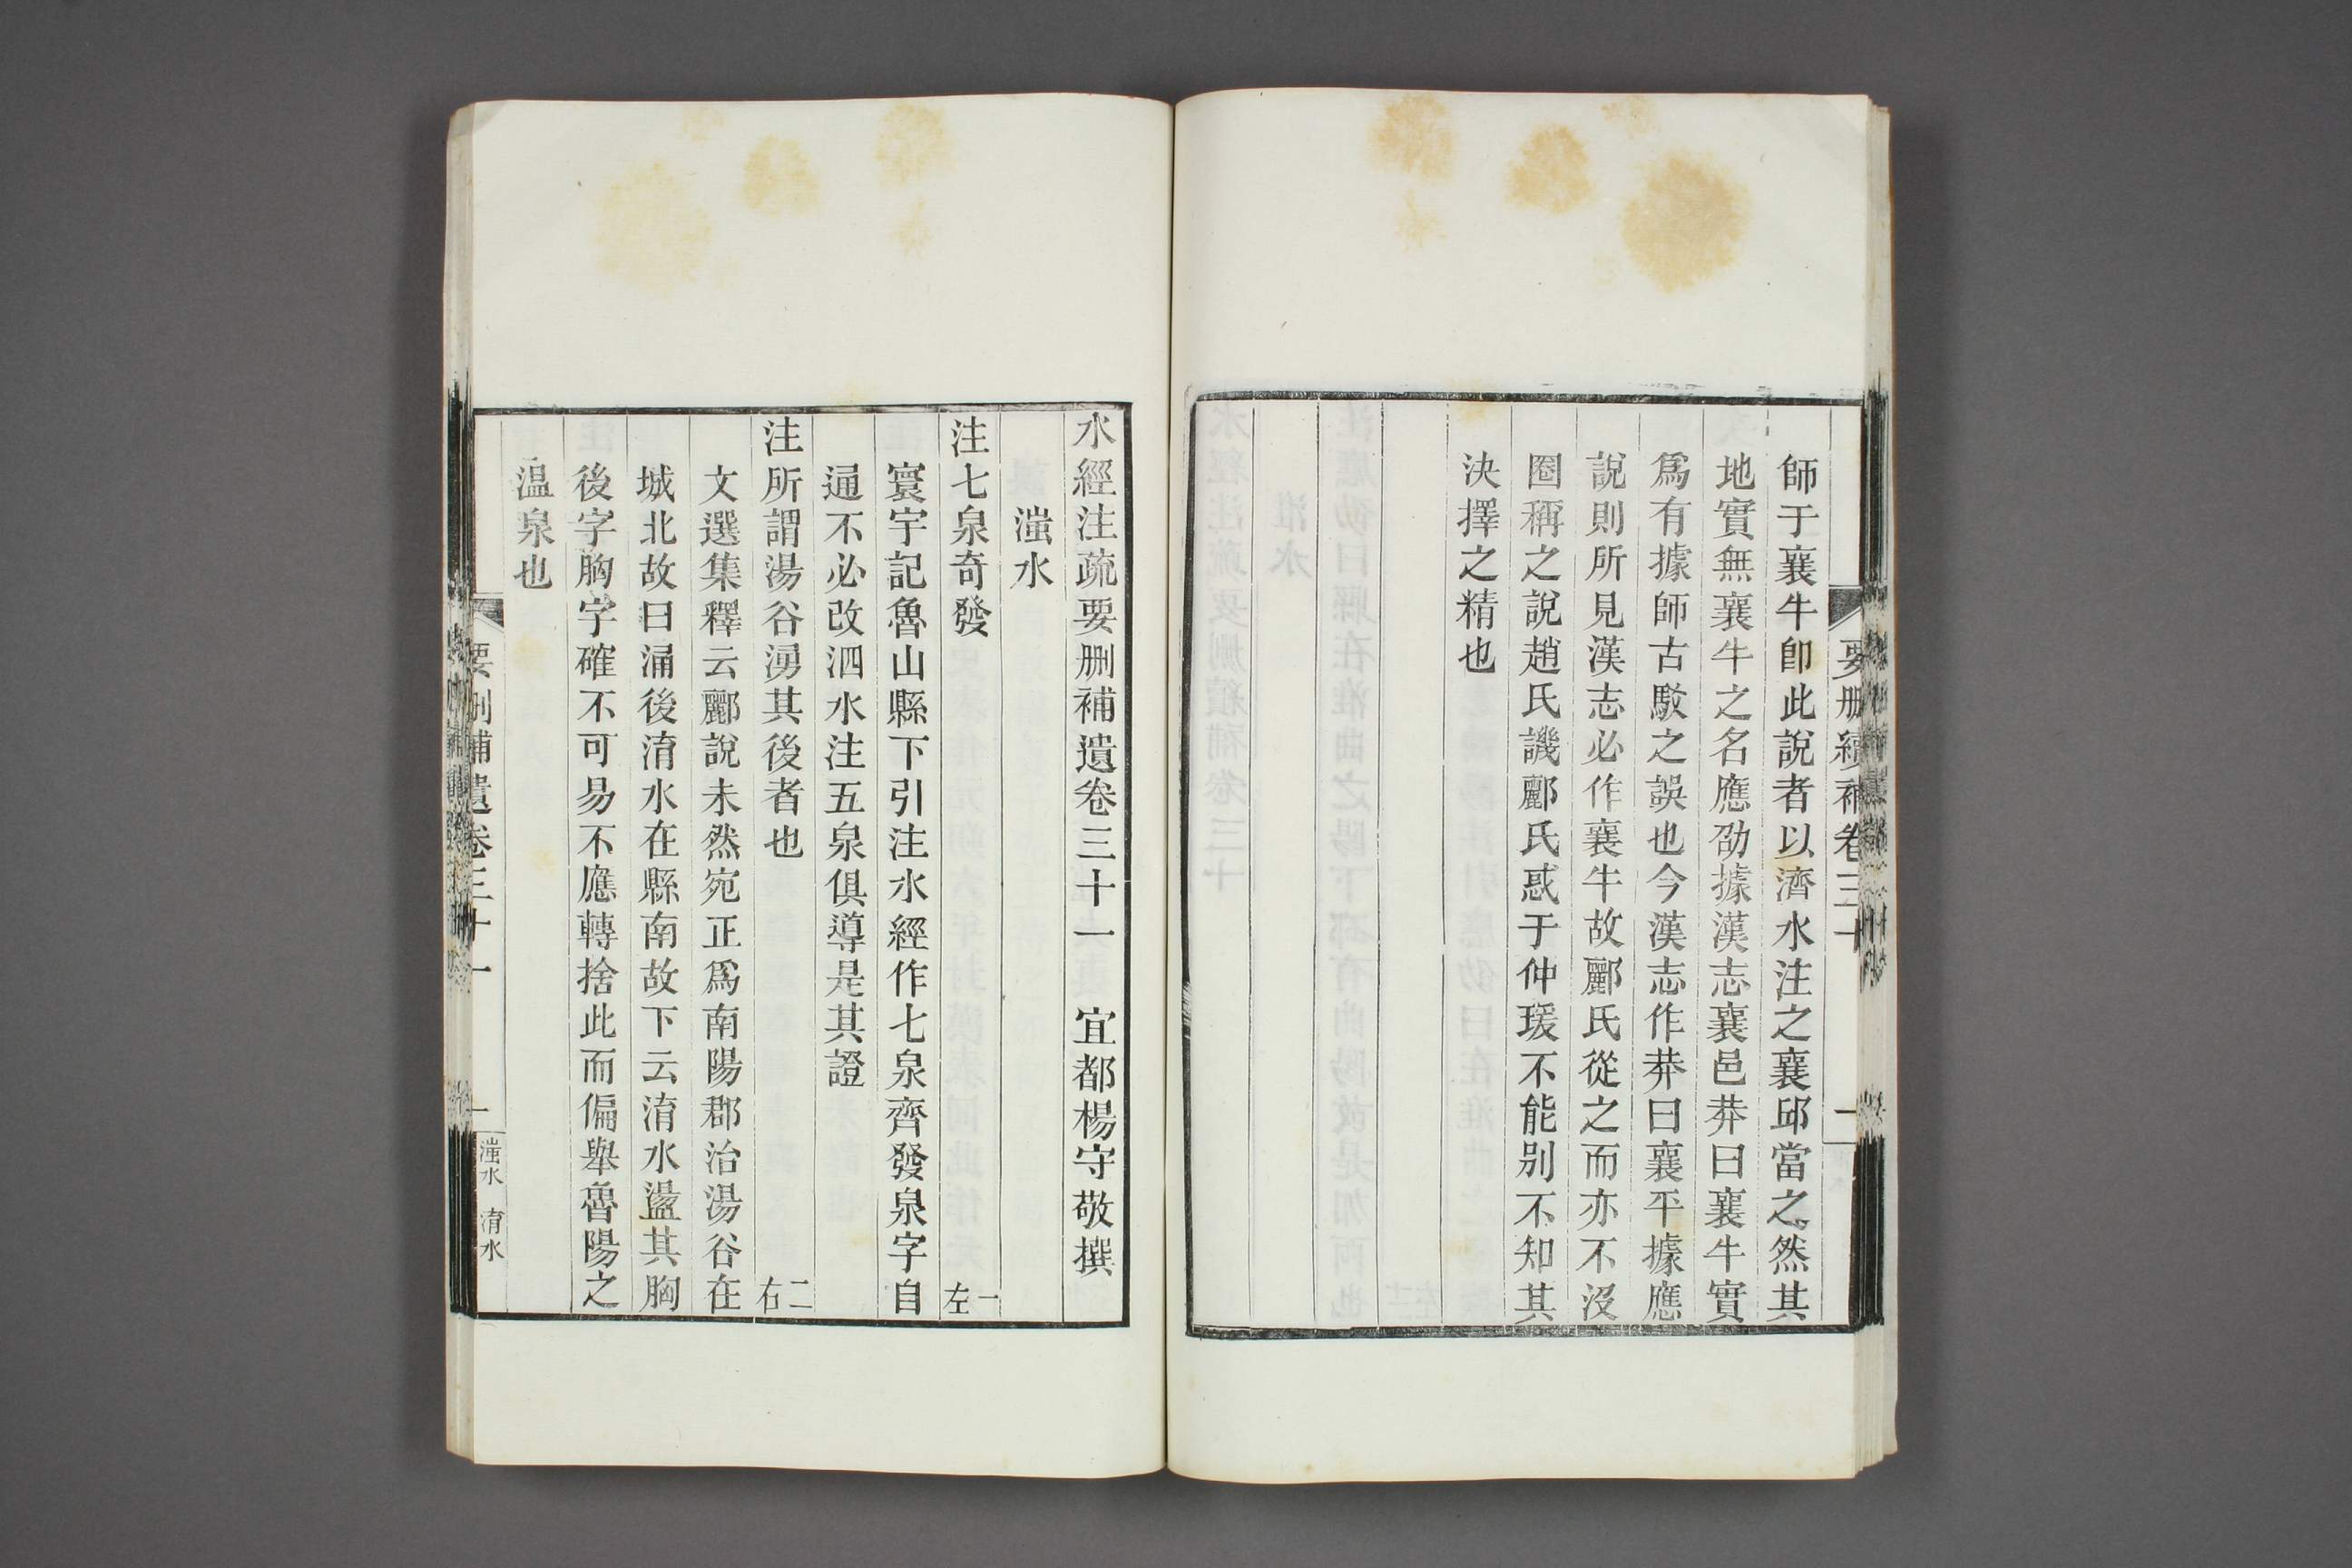 要刪續補卷三十 一
師于襄牛卽此說者以濟水注之襄邱當之然其
地實無襄牛之名應劭據漢志襄邑莽曰襄牛實
爲有據師古駮之誤也今漢志作莽曰襄平據應
說則所見漢志必作襄牛故酈氏從之而亦不沒
圈稱之說趙氏譏酈氏惑于仲瑗不能别不知其
決擇之精也
水經注疏要刪補遺卷三十一 宜都楊守敬撰
滍水
注七泉奇發 一左
寰宇記魯山縣下引注水經作七泉齊發泉字自
通不必改泗水注五泉俱導是其證
注所謂湯谷湧其後者也 二右
文選集釋云酈說未然宛正爲南陽郡治湯谷在
城北故曰涌後淯水在縣南故下云淯水盪其胸
後字胸字確不可易不應轉捨此而偏舉魯陽之
温泉也
要刪補遺卷三十一 一 滍水 淯水